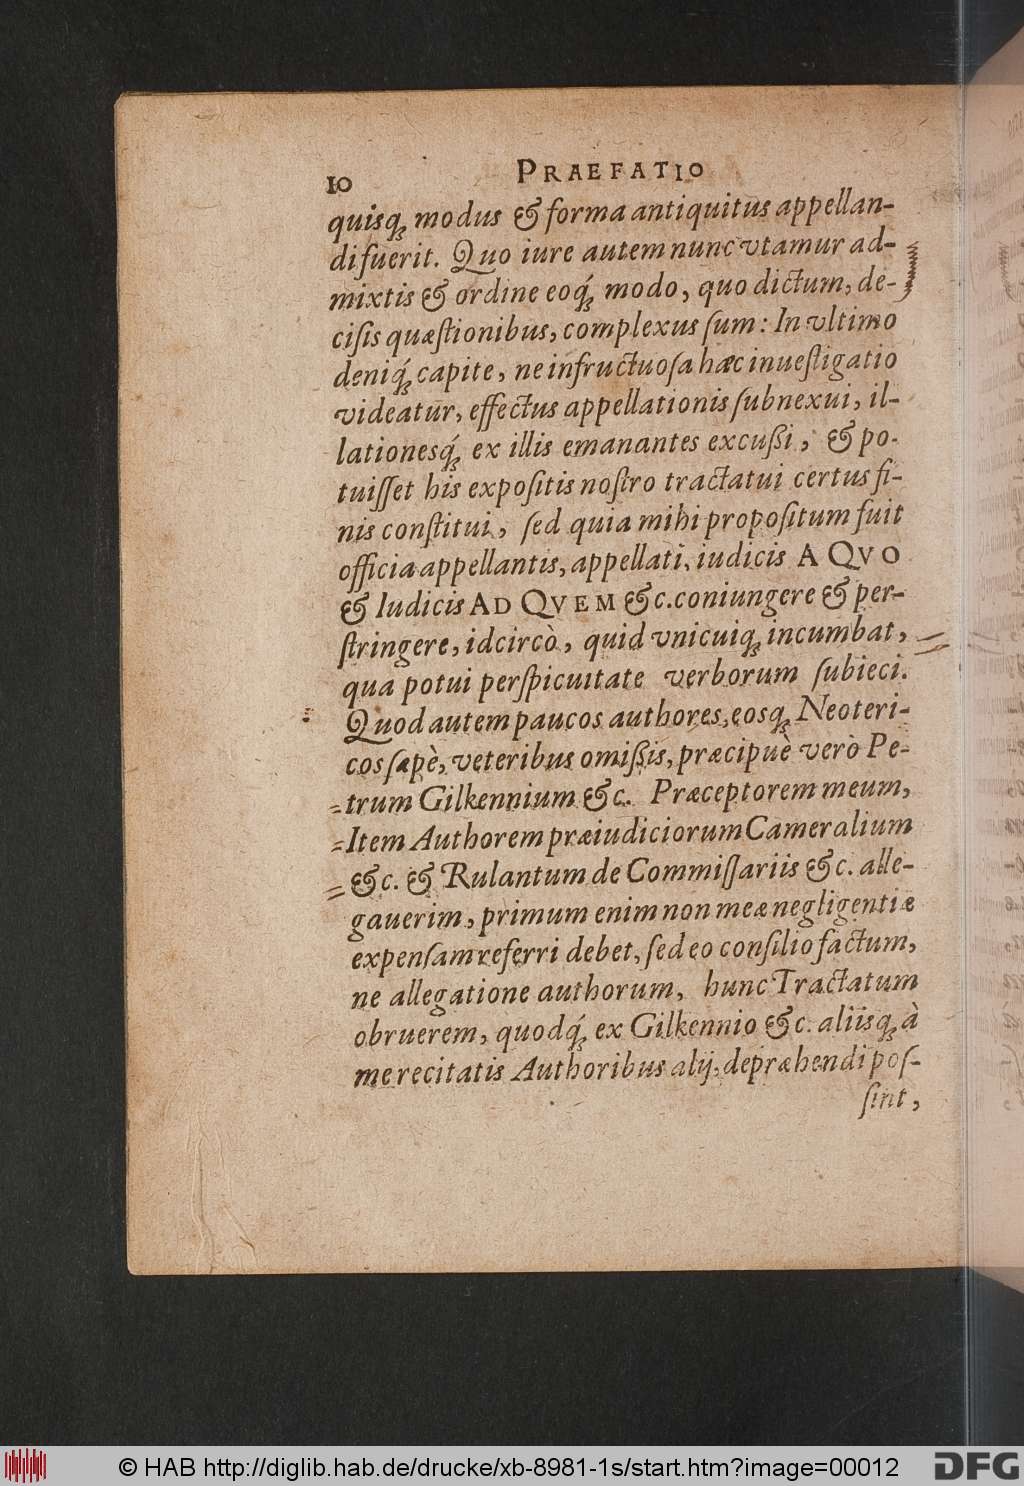 10 PRAEFATIO
quisq; modus & forma antiquitus appellan-
di fuerit. Quo iure autem nunc vtamur ad-
mixtis & ordine eoq́; modo, quo dictum, de-
cisis quæstionibus, complexus sum: In vltimo
deniq́; capite, ne infructuosa hæc inuestigatio
videatur, effectus appellationis subnexui, il-
lationesq́; ex illis emanantes excußi, & po-
tuisset his expositis nostro tractatui certus fi-
nis constitui, sed quia mihi propositum fuit
officia appellantis, appellati, iudicis A QVO
& Iudicis AD QVEM &c. coniungere & per-
stringere, idcircò, quid vnicuiq; incumbat,
qua potui perspicuitate verborum subieci.
Quod autem paucos authores, eosq; Neoteri-
cos sæpè, veteribus omißis, præcipuè verò Pe-
trum Gilkennium &c. Præceptorem meum,
Item Authorem præiudiciorum Cameralium
&c. & Rulantum de Commissariis &c. alle-
gauerim, primum enim non meæ negligentiæ
expensam referri debet, sed eo consilio factum,
ne allegatione authorum, hunc Tractatum
obruerem, quodq́; ex Gilkennio &c. aliisq; à
me recitatis Authoribus alij, depræhendi pos-
sint,
© HAB http://diglib.hab.de/drucke/xb-8981-1s/start.htm?image=00012 DFG